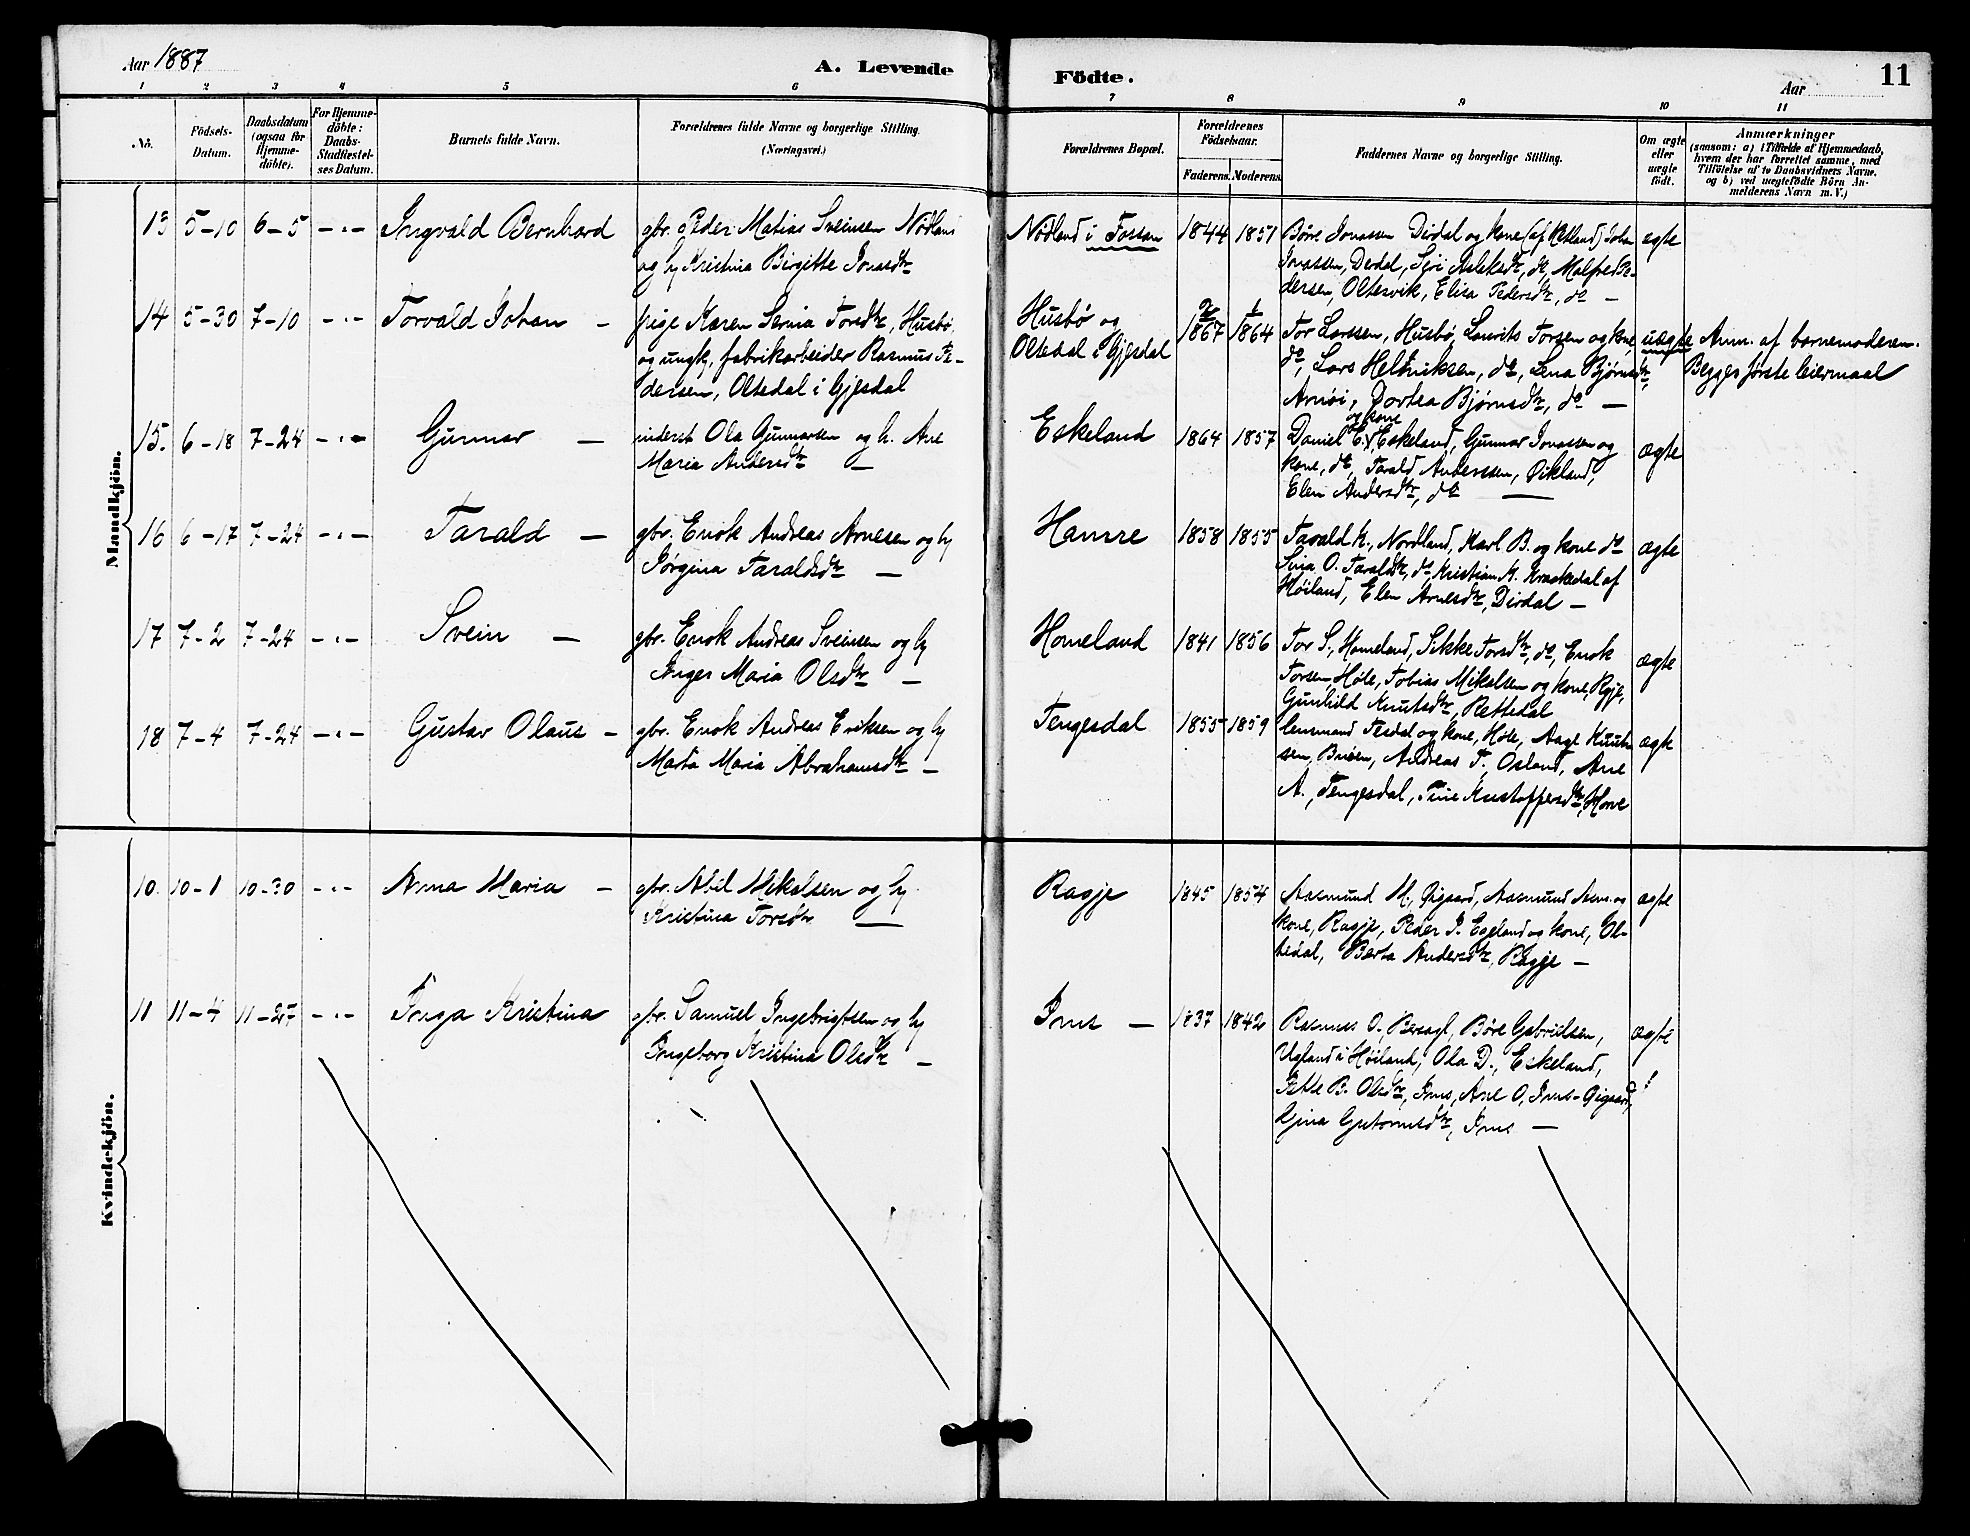 Aar 1887
A. Levende
Födte.
Aar
11
1 2 3 4 5 6 7 8 9 10 11
No.
Födsels-
Datum.
Daabsdatum
(ogsaa for
Hjemme-
döbte).
For Hjemme-
döbte:
Daabs-
Stadfæstel-
ses Datum.
Barnets fulde Navn.
Forældrenes fulde Navne og borgerlige Stilling.
(Næringsvei.)
Forældrenes Bopæl.
Forældrenes
Födselsaar.
Faderens.
Moderens.
Faddernes Navne og borgerlige Stilling.
Om ægte
eller
uægte
födt.
Anmærkninger
(saasom: a) i Tilfælde af Hjemmedaab,
hvem der har forrettet samme, med
Tilföielse af to Daabsvidners Navne,
og b) ved uægtefödte Börn An-
melderens Navn m.V.)
Mandkjön.
13 5-10 6-5 -"- Ingvald Bernhard
gbr. Peder Matias Sveinsen Nödland
og hu Kristina Birgitte Jonasdtr
Nödland i Fossan 1844 1851
Böre Jonassen Dirdal og kone (af Østland) Johan
Jonassen, Dirdal, Seri Aslaksdtr, do, Malfred Pe-
dersen, Oltesvik, Elisa Pedersdtr, do —
ægte
14 5-30 7-10 -"- Torvald Johan —
pige Karen Serina Torsdtr, Husbö,
og ungk. fabrikarbeider Rasmus Pe-
dersen, Oltedal i Gjesdal
Husbö og
Oltedal i Gjesdal
1867 1864
Tor Larssen, Husbö, Laurits Torsen og kone,
do, Lars Helmiksen, do, Lena Bjørnsdtr,
Arnöi, Dortea Bjørnsdtr, do —
uægte
Anm. af barnemoderen.
Begges förste leiermaal
15. 6-18 7-24 -"- Gunnar —
inderst Ola Gunnarsen og h. Ane
Maria Andersdtr —
Eskeland 1864 1857
og kone
Daniel E. Eskeland, Gunnar Jonassen og
kone, do, Tarald Anderssen, Øikland,
Elen Andersdtr, do —
ægte
16 6-17 7-24 -"- Tarald —
gbr. Enok Andreas Arnesen og hu
Jørgina Taraldsdtr —
Hamre 1858 1855
Tarald K., Nordland, Karl B. og kone do
Sina O. Taraldsdtr, do, Kristian K. Kraakedal af
Høiland, Elen Arnesdtr, Dirdal —
ægte
17 7-2 7-24 -"- Svein —
gbr. Enok Andreas Sveinsen og hu
Inger Maria Olsdtr —
Homeland 1841 1856
Tor S., Homeland, Sikke Torsdtr, do, Enok
Torsen, Høle, Tobias Mikalsen og kone, Ragje,
Gunhild Knutsdtr, Rettedal
ægte
18 7-4 7-24 -"- Gustav Olaus —
gbr. Enok Andreas Eriksen og hu
Marta Maria Abrahamsdtr —
Tengesdal 1855 1859
lensmand Tesdal og kone, Høle, Aage Knut-
sen, Bruen, Andreas T., Osland, Ane
A., Tengesdal, Tine Kristoffersdtr, Hove
ægte
Kvindekjön.
10. 10-1 10-30 -"- Anna Maria —
gbr. Abil Mikalsen og hu
Kristina Torsdtr —
Ragje 1845 1854
Aasmund M., Øigaard, Aasmund Asm. og
kone, Ragje, Peder J. Egeland og kone, Ol-
tedal, Berta Andersdtr, Ragje —
ægte
11 11-4 11-27 -"- Inga Kristina
gbr. Samuel Ingebrigtsen og hu
Ingeborg Kristina Olsdtr —
Ims — 1837 1842
Rasmus O., Bersagl, Böre Gabrielsen,
Ugland i Høiland, Ola D., Eskeland,
Jette B. Olsdtr, Ims, Ane O, Ims-Øigaard,
Gjina Gutormsdtr, Ims —
ægte!